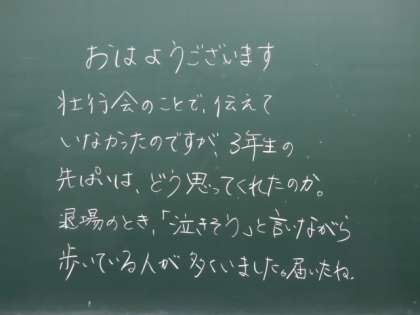 おはようございます
壮行会のことで、伝えて
いなかったのですが、3年生の
先ぱいは、どう思ってくれたのか。
退場のとき、「泣きそう」と言いながら
歩いている人が多くいました。届いたね。